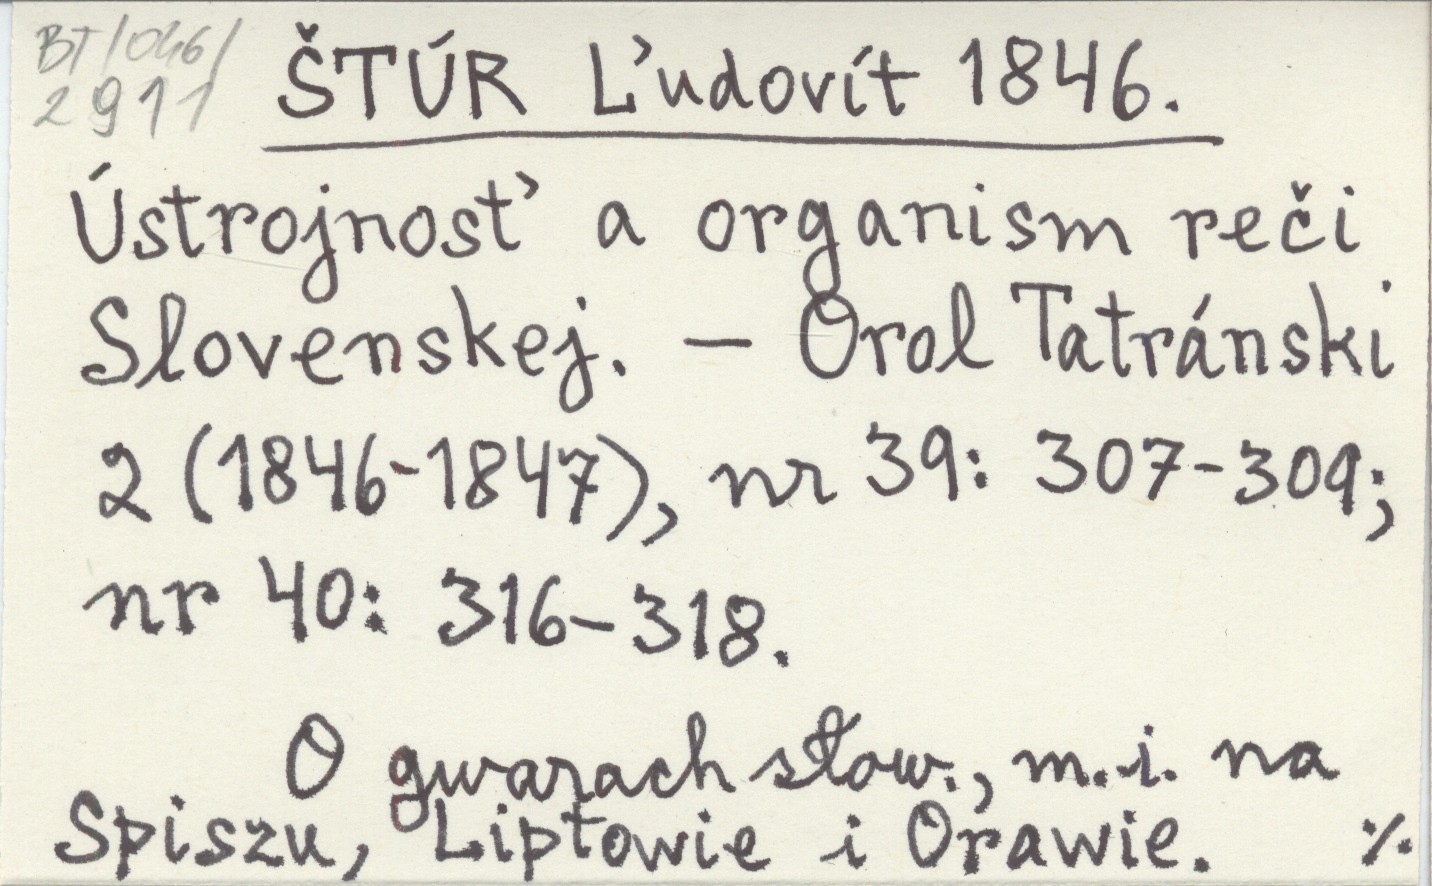 BT/046/
2911
ŠTÚR Ľudovít 1846.
Ústrojnosť a organism reči
Slovenskej. – Orol Tatránski
2 (1846-1847), nr 39: 307-309;
nr 40: 316-318.
O gwarach słow., m.i. na
Spiszu, Liptowie i Orawie. ./.